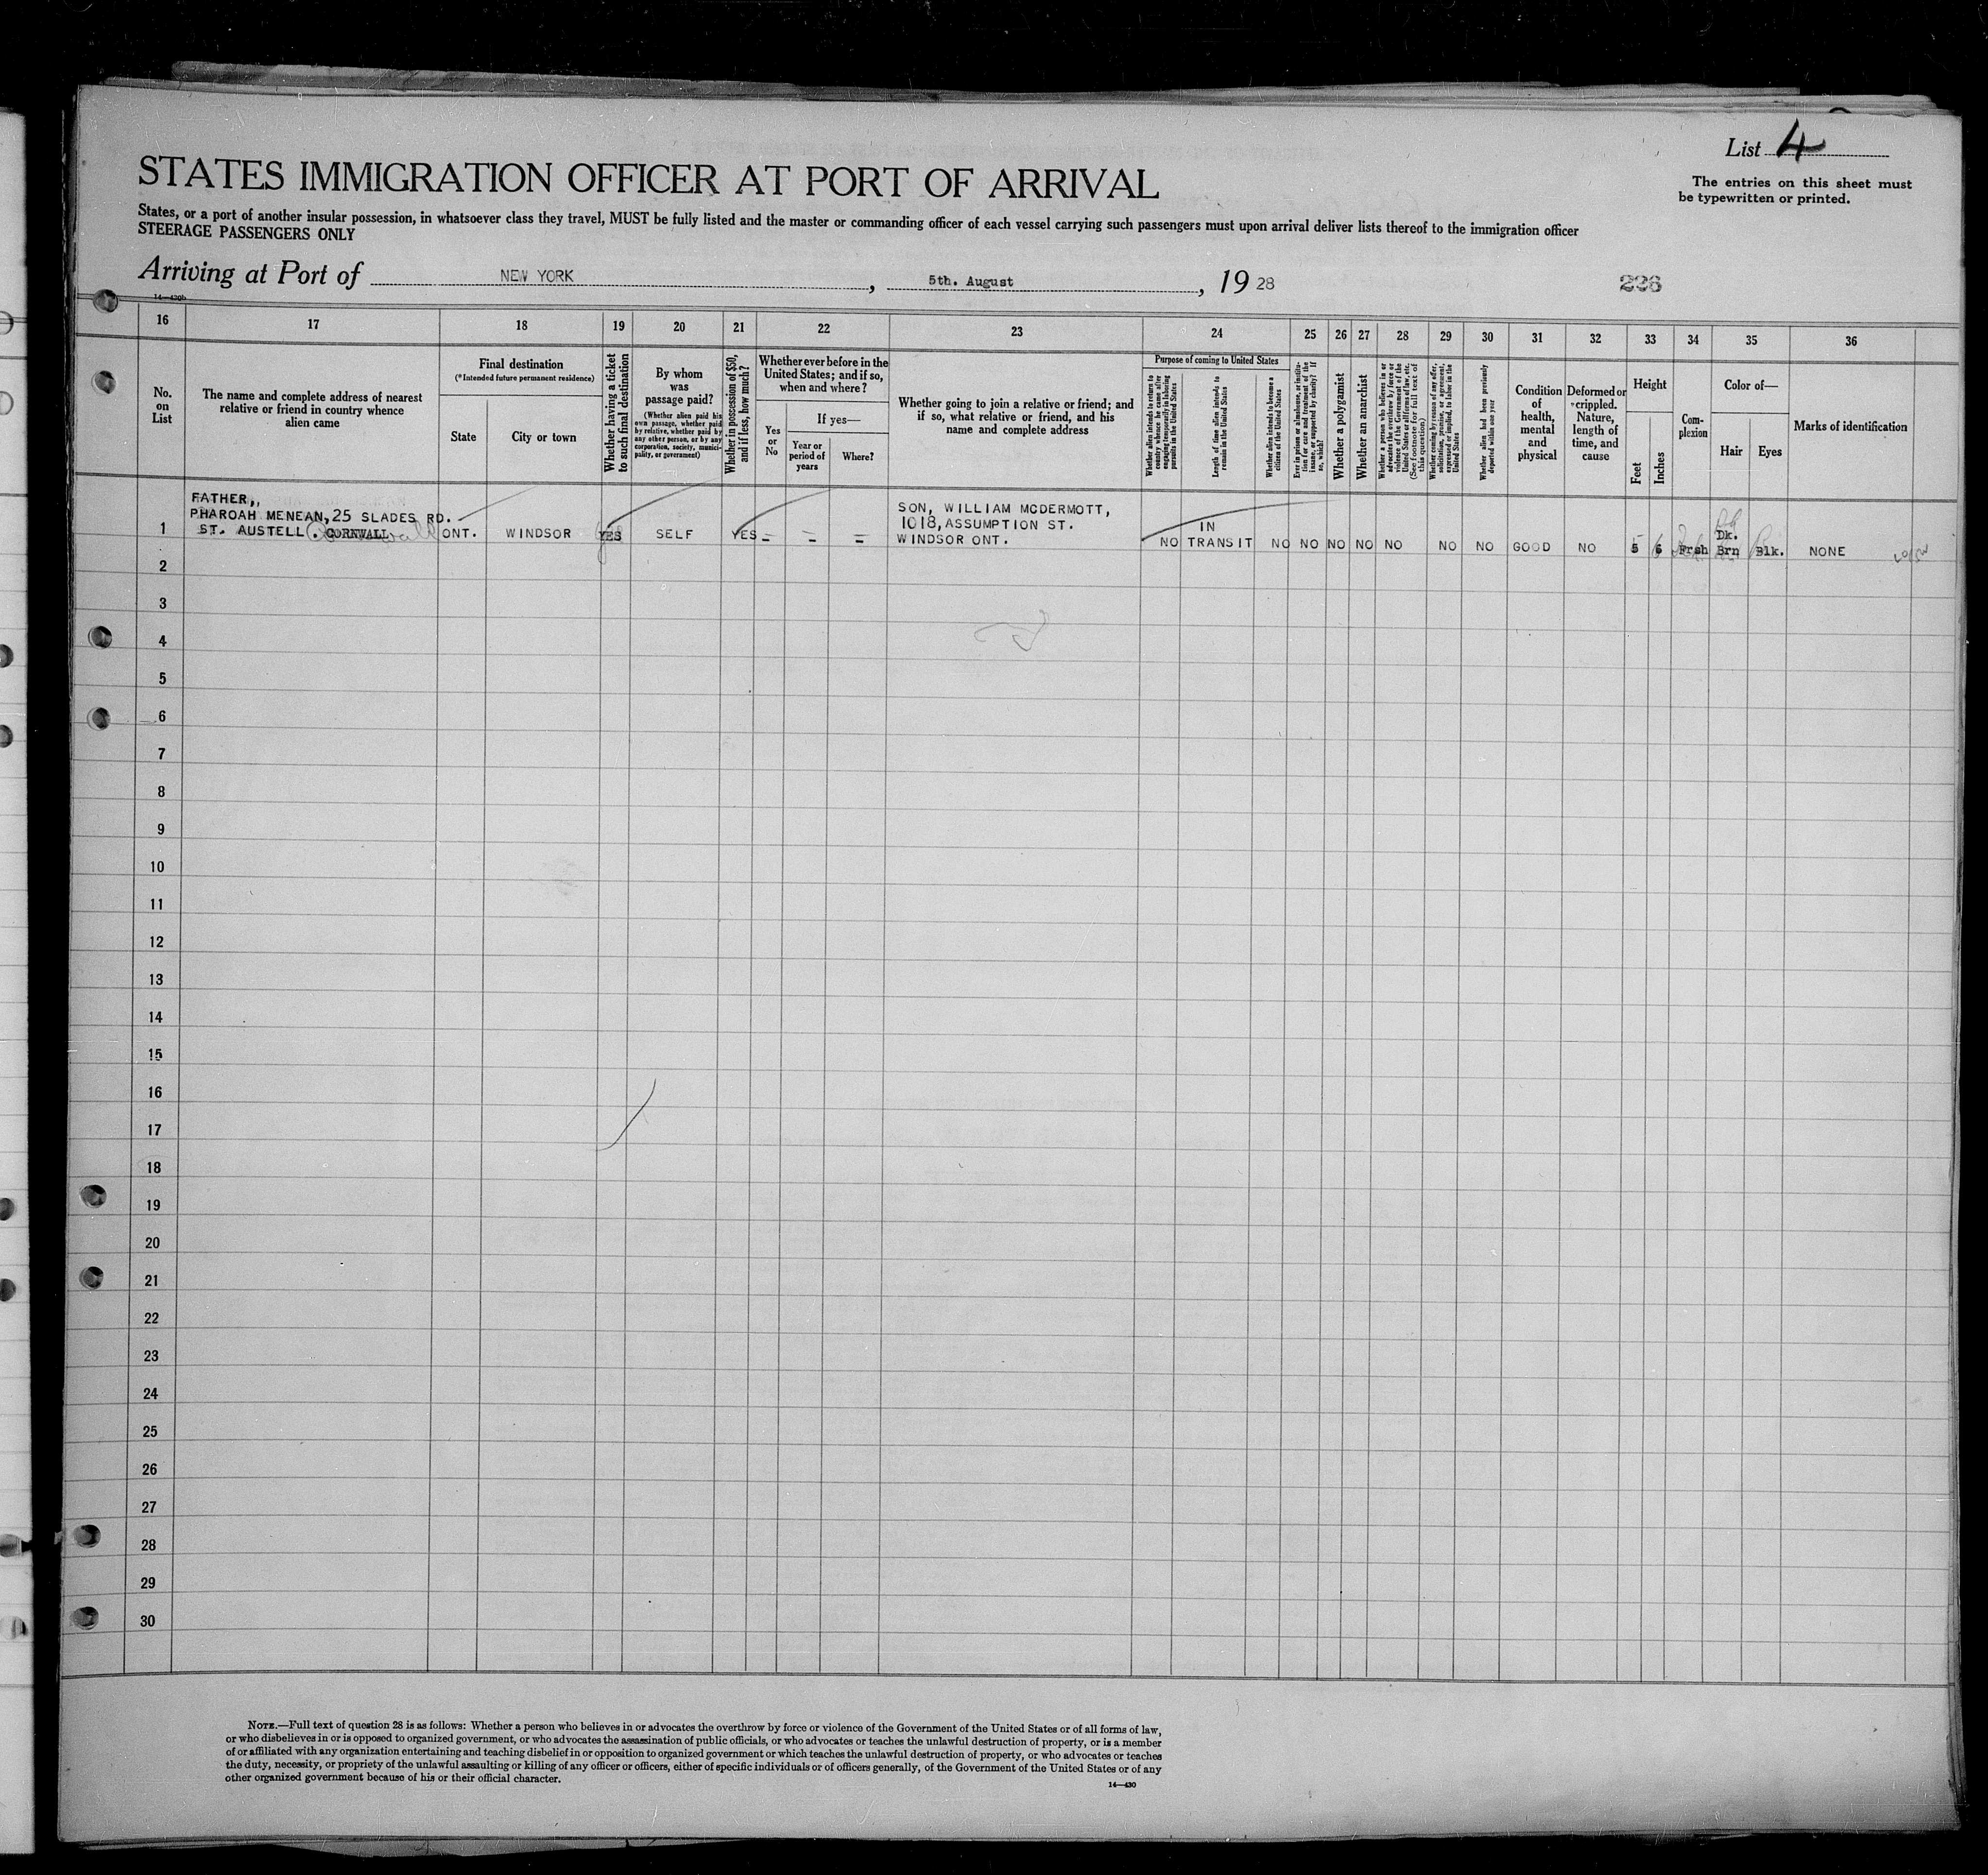 List 4
The entries on this sheet must
be typewritten or printed.
STATES IMMIGRATION OFFICER AT PORT OF ARRIVAL
States, or a port of another insular possession, in whatsoever class they travel, MUST be fully listed and the master or commanding officer of each vessel carrying such passengers must upon arrival deliver lists thereof to the immigration officer
STEERAGE PASSENGERS ONLY
Arriving at Port of NEW YORK, 5th. August, 19 28
226
14—430b
16 17 18 19 20 21 22 23 24 25 26 27 28 29 30 31 32 33 34 35 36
No.
on
List
The name and complete address of nearest
relative or friend in country whence
alien came
Final destination
(*Intended future permanent residence)
State
City or town
Whether having a ticket
to such final destination
By whom
was
passage paid?
(Whether alien paid his
own passage, whether paid
by relative, whether paid by
any other person, or by any
corporation, society, munici-
pality, or government)
Whether in possession of $50,
and if less, how much?
Whether ever before in the
United States; and if so,
when and where?
Yes
or
No
If yes—
Year or
period of
years
Where?
Whether going to join a relative or friend; and
if so, what relative or friend, and his
name and complete address
Purpose of coming to United States
Whether alien intends to return to
country whence he came after
engaging temporarily in laboring
pursuits in the United States
Length of time alien intends to
remain in the United States
Whether alien intends to become a
citizen of the United States
Ever in prison or almshouse, or institu-
tion for care and treatment of the
insane, or supported by charity? If
so, which?
Whether a polygamist
Whether an anarchist
Whether a person who believes in or
advocates the overthrow by force or
violence of the Government of the
United States or all forms of law, etc.
(See footnote for full text of
this question)
Whether coming by reason of any offer,
solicitation, promise, or agreement,
expressed or implied, to labor in the
United States
Whether alien had been previously
deported within one year
Condition
of
health,
mental
and
physical
Deformed or
crippled.
Nature,
length of
time, and
cause
Height
Feet
Inches
Com-
plexion
Color of—
Hair
Eyes
Marks of identification
1
FATHER,,
PHAROAH MENEAN, 25 SLADES RD.
ST. AUSTELL. CORNWALL
ONT. WINDSOR YES SELF YES - - -
SON, WILLIAM MCDERMOTT,
1018, ASSUMPTION ST.
WINDSOR ONT.
NO
IN
TRANSIT
NO NO NO NO NO NO NO GOOD NO 5 6 Frsh
Dk.
Brn
Blk. NONE
2
3
4
5
6
7
8
9
10
11
12
13
14
15
16
17
18
19
20
21
22
23
24
25
26
27
28
29
30
NOTE.—Full text of question 28 is as follows: Whether a person who believes in or advocates the overthrow by force or violence of the Government of the United States or of all forms of law,
or who disbelieves in or is opposed to organized government, or who advocates the assassination of public officials, or who advocates or teaches the unlawful destruction of property, or is a member
of or affiliated with any organization entertaining and teaching disbelief in or opposition to organized government or which teaches the unlawful destruction of property, or who advocates or teaches
the duty, necessity, or propriety of the unlawful assaulting or killing of any officer or officers, either of specific individuals or of officers generally, of the Government of the United States or of any
other organized government because of his or their official character.
14—430